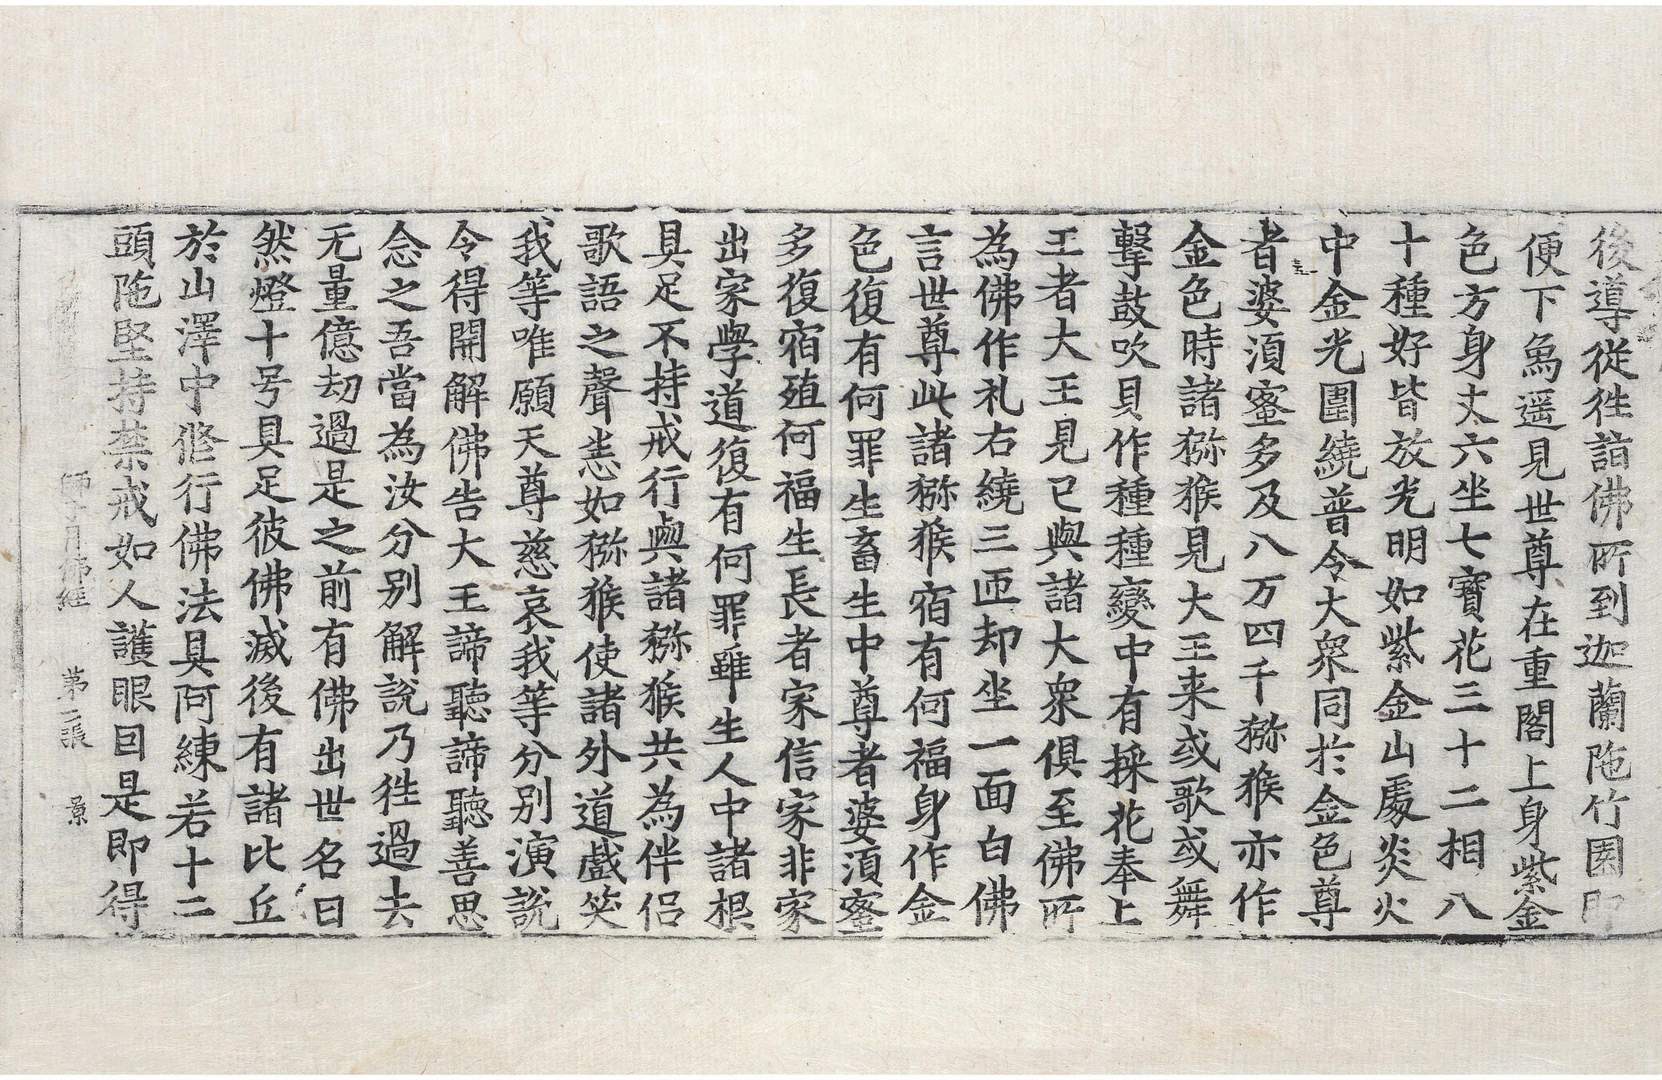 後導從往詣佛所到迦蘭陁竹園即
便下為遥見世尊在重閣上身紫金
色方身丈六坐七寶花三十二相八
十種好皆放光明如紫金山處炎火
中金光圍繞普令大衆同於金色尊
者婆湏蜜多及八万四千猕猴亦作
金色時諸猕猴見大王来或歌或舞
擊鼓吹貝作種種變中有採花奉上
王者大王見已與諸大衆俱至佛所
為佛作礼右繞三匝却坐一面白佛
言世尊此諸猕猴宿有何福身作金
色復有何罪生畜生中尊者婆湏蜜
多復宿殖何福生長者家信家非家
出家學道復有何罪雖生人中諸根
具足不持戒行與諸猕猴共為伴侣
歌語之聲恙如猕猴使諸外道戲笑
我等唯願天尊慈哀我等分別演說
令得開解佛告大王諦聽諦聽善思
念之吾當為汝分別解說乃往過去
无量億劫過是之前有佛出世名曰
然燈十号具足彼佛滅後有諸比丘
於山澤中修行佛法具阿練若十二
頭陁堅持禁戒如人護眼因是即得
師子月佛經 苐二張 景